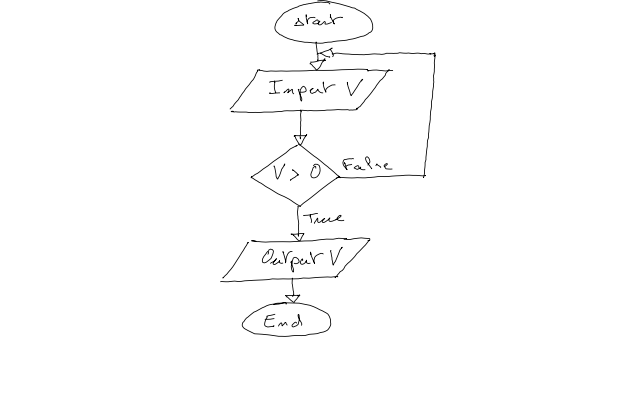 start
Input V
V > 0
False
True
Output V
End